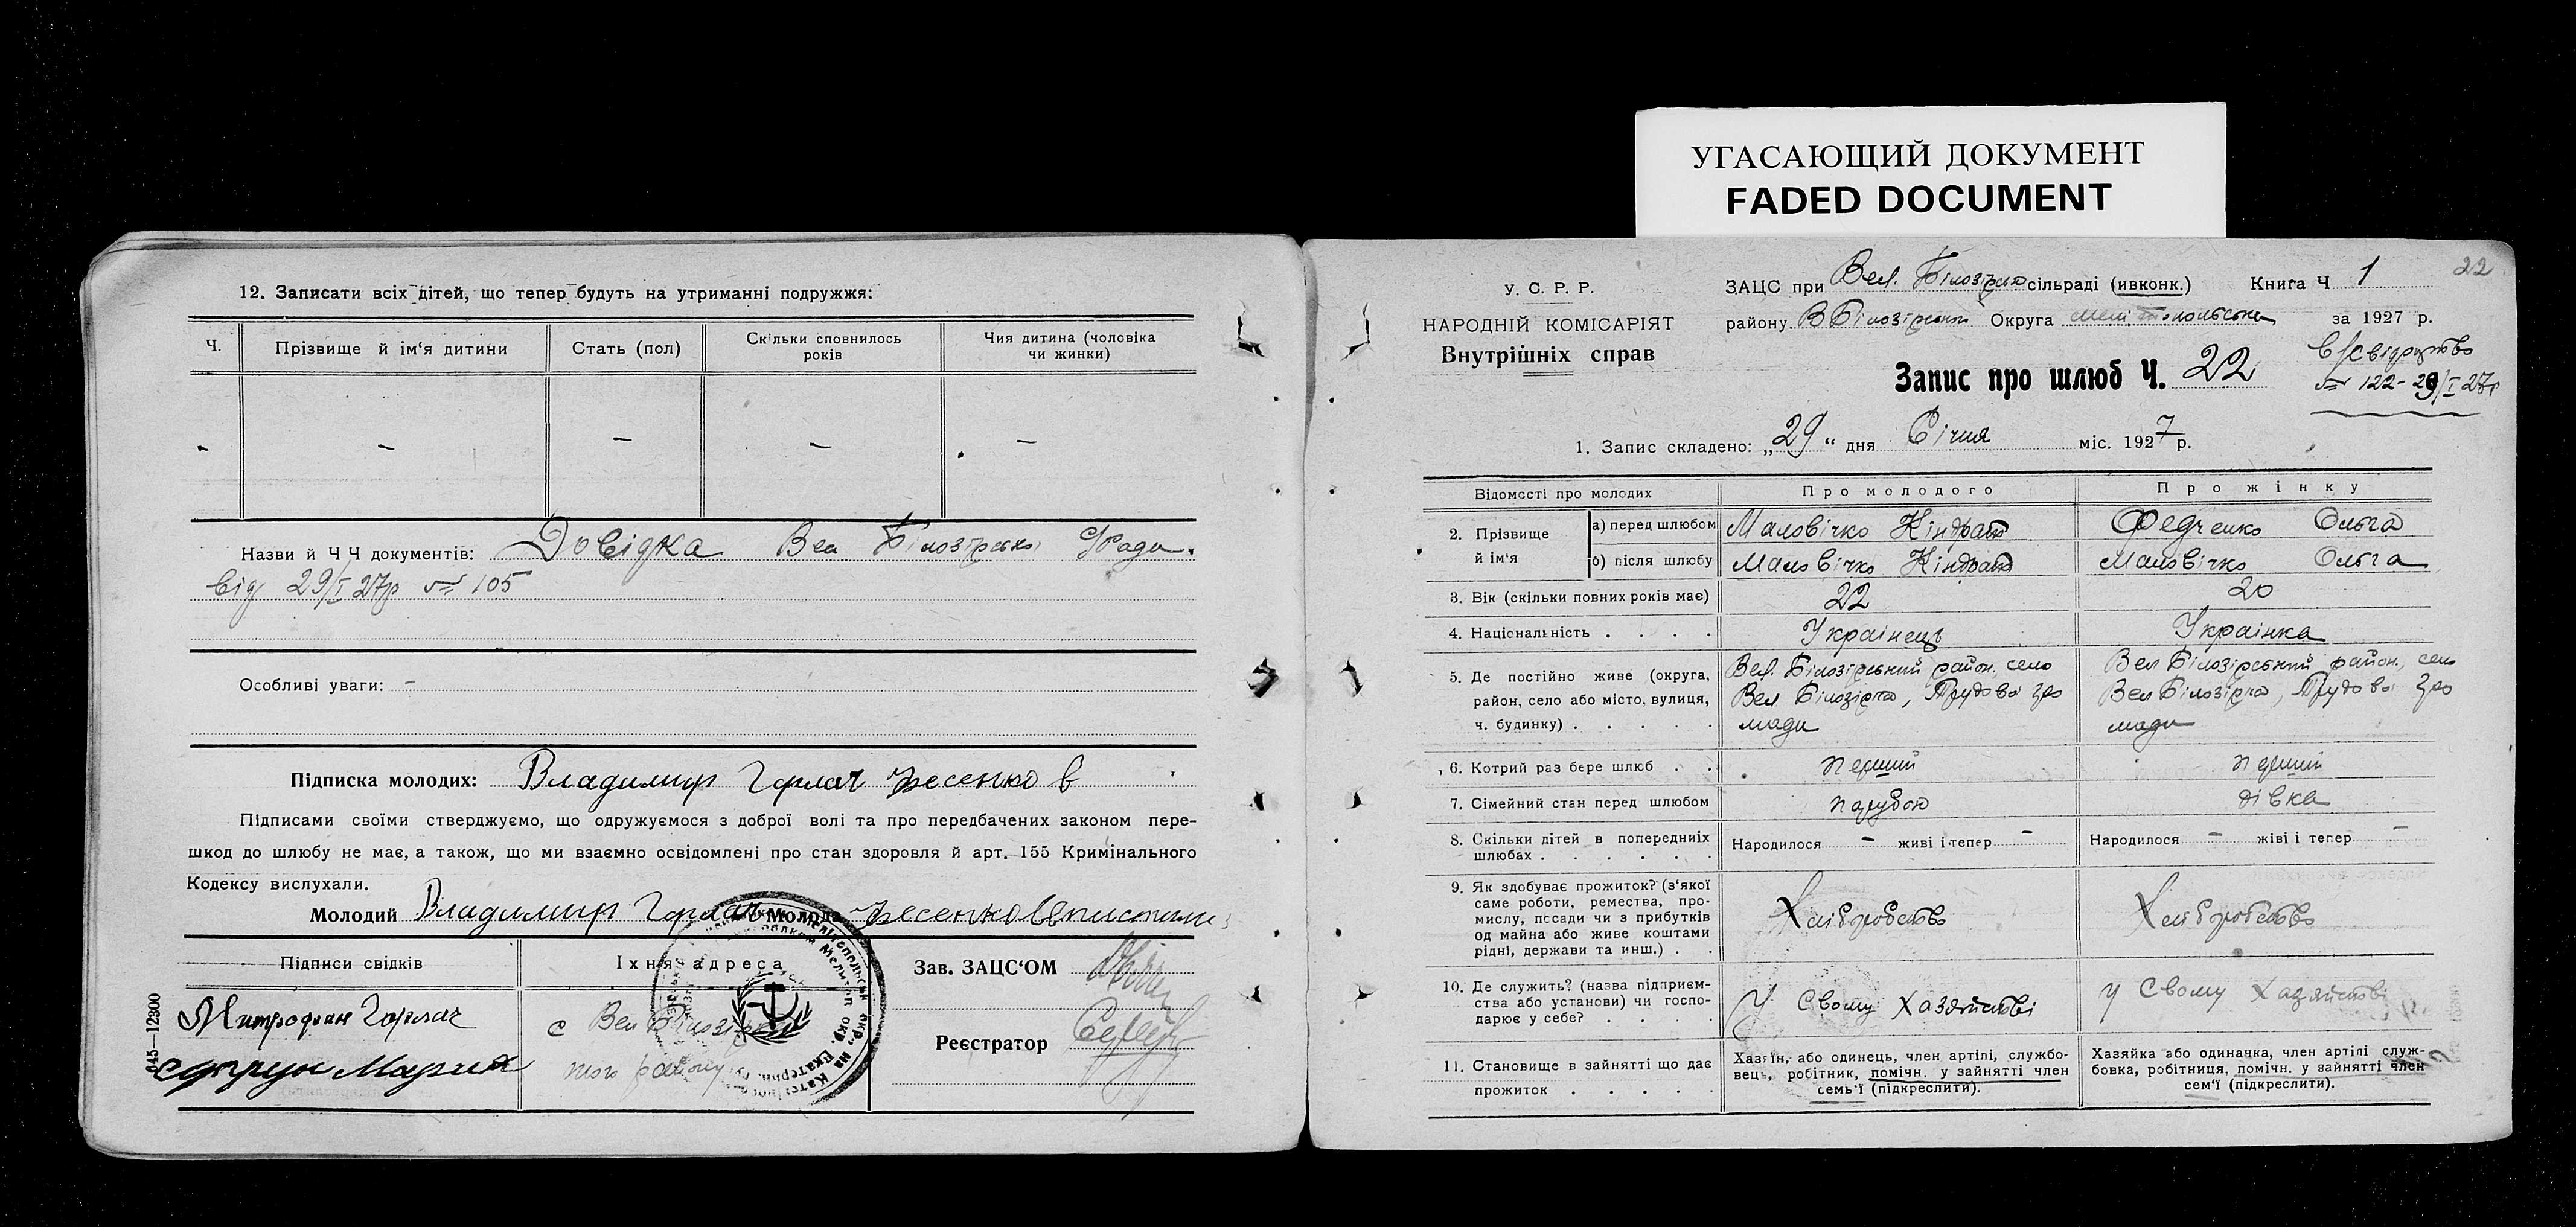 УГАСАЮЩИЙ ДОКУМЕНТ
FADED DOCUMENT
12. Записати всіх дітей, що тепер будуть на утриманні подружжя:
Ч.
Прізвище й ім‘я дитини
Стать (пол)
Скільки сповнилось років
Чия дитина (чоловіка чи жинки)
- - - - -
Назви й Ч Ч документів: Довідка Вел Білозірської С/Ради.
від 29/I 27р № 105
Особливі уваги: -
Підписка молодих: Владимир Горлач
Підписами своїми стверджуємо, що одружуємося з доброї волі та про передбачених законом пере-
шкод до шлюбу не має, а також, що ми взаємно освідомлені про стан здоровля й арт. 155 Кримінального
Кодексу вислухали.
Молодий Владимир Горлач Молода
Підписи свідків
Їхня адреса
Зав. ЗАЦС‘ОМ
Митрофан Горлач
с Вел Білозірка
Реєстратор
Супрун Мария
того району
645—12900
22
У. С. Р. Р.
НАРОДНІЙ КОМІСАРІЯТ
Внутрішніх справ
ЗАЦС при Вел. Білозірській сільраді (ивконк.) Книга Ч 1
району В Білозірський Округа Мелітопольська за 1927 р.
Запис про шлюб Ч. 22
в/свідоцтво
№ 122- 29/I 27р
1. Запис складено: „29“ дня Січня міс. 1927 р.
Відомості про молодих
Про молодого
Про жінку
2. Прізвище й ім‘я
а) перед шлюбом
Маловічко Кіндрат
Федченко Ольга
б) після шлюбу
Маловічко Кіндрат
Маловічко Ольга
3. Вік (скільки повних років має)
22
20
4. Національність . . . .
Українець
Українка
5. Де постійно живе (округа,
район, село або місто, вулиця,
ч. будинку) . . . . .
Вел. Білозірський район, село
Вел Білозірка, Трудової гро
мади
Вел Білозірський район, село
Вел Білозірка, Трудової гро
мади
6. Котрий раз бере шлюб . .
перший
перший
7. Сімейний стан перед шлюбом
парубок
дівка
8. Скільки дітей в попередниіх
шлюбах . . . . . .
Народилося - живі і тепер -
Народилося - жіві і тепер -
9. Як здобуває прожиток? (з‘якої
саме роботи, ремества, про-
мислу, посади чи з прибутків
од майна або живе коштами
рідні, держави та инш.) . .
Хліборобство
Хліборобство
10. Де служить? (назва підприєм-
ства або установи) чи госпо-
дарює у себе? . . . .
У Свому Хазяйстві
У Свому Хазяйстві
11. Становище в зайнятті що дає
прожиток . . . . .
Хазяїн, або одинець, член артілі, службо-
вець, робітник, помічн. у зайнятті член
семь‘ї (підкреслити).
Хазяйка або одиначка, член артілі служ-
бовка, робітниця, помічн. у зайнятті член
сем‘ї (підкреслити).